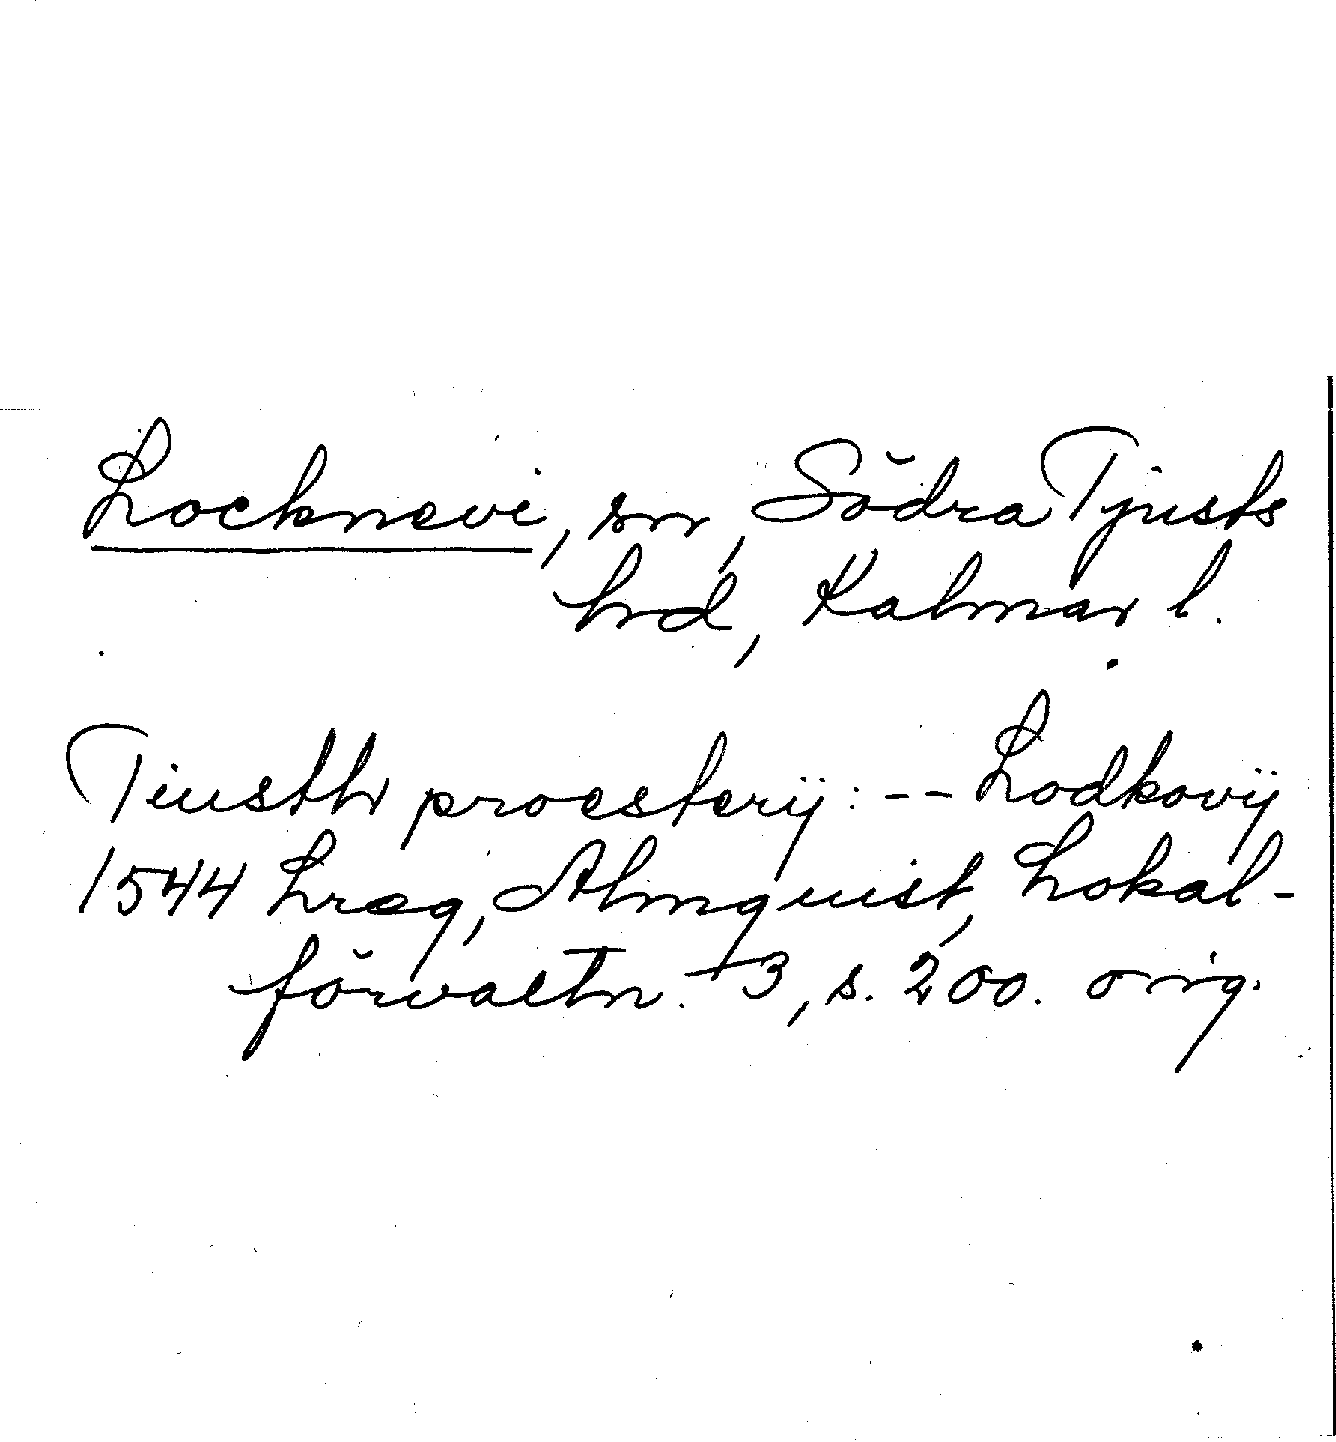 Locknevi, sn, Södra Tjusts
hrd, Kalmar l.
Tiusth proesterij: -- Lodkovij
1544 Lreg, Almquist, Lokal-
förvaltn. 3, s. 200. orig.